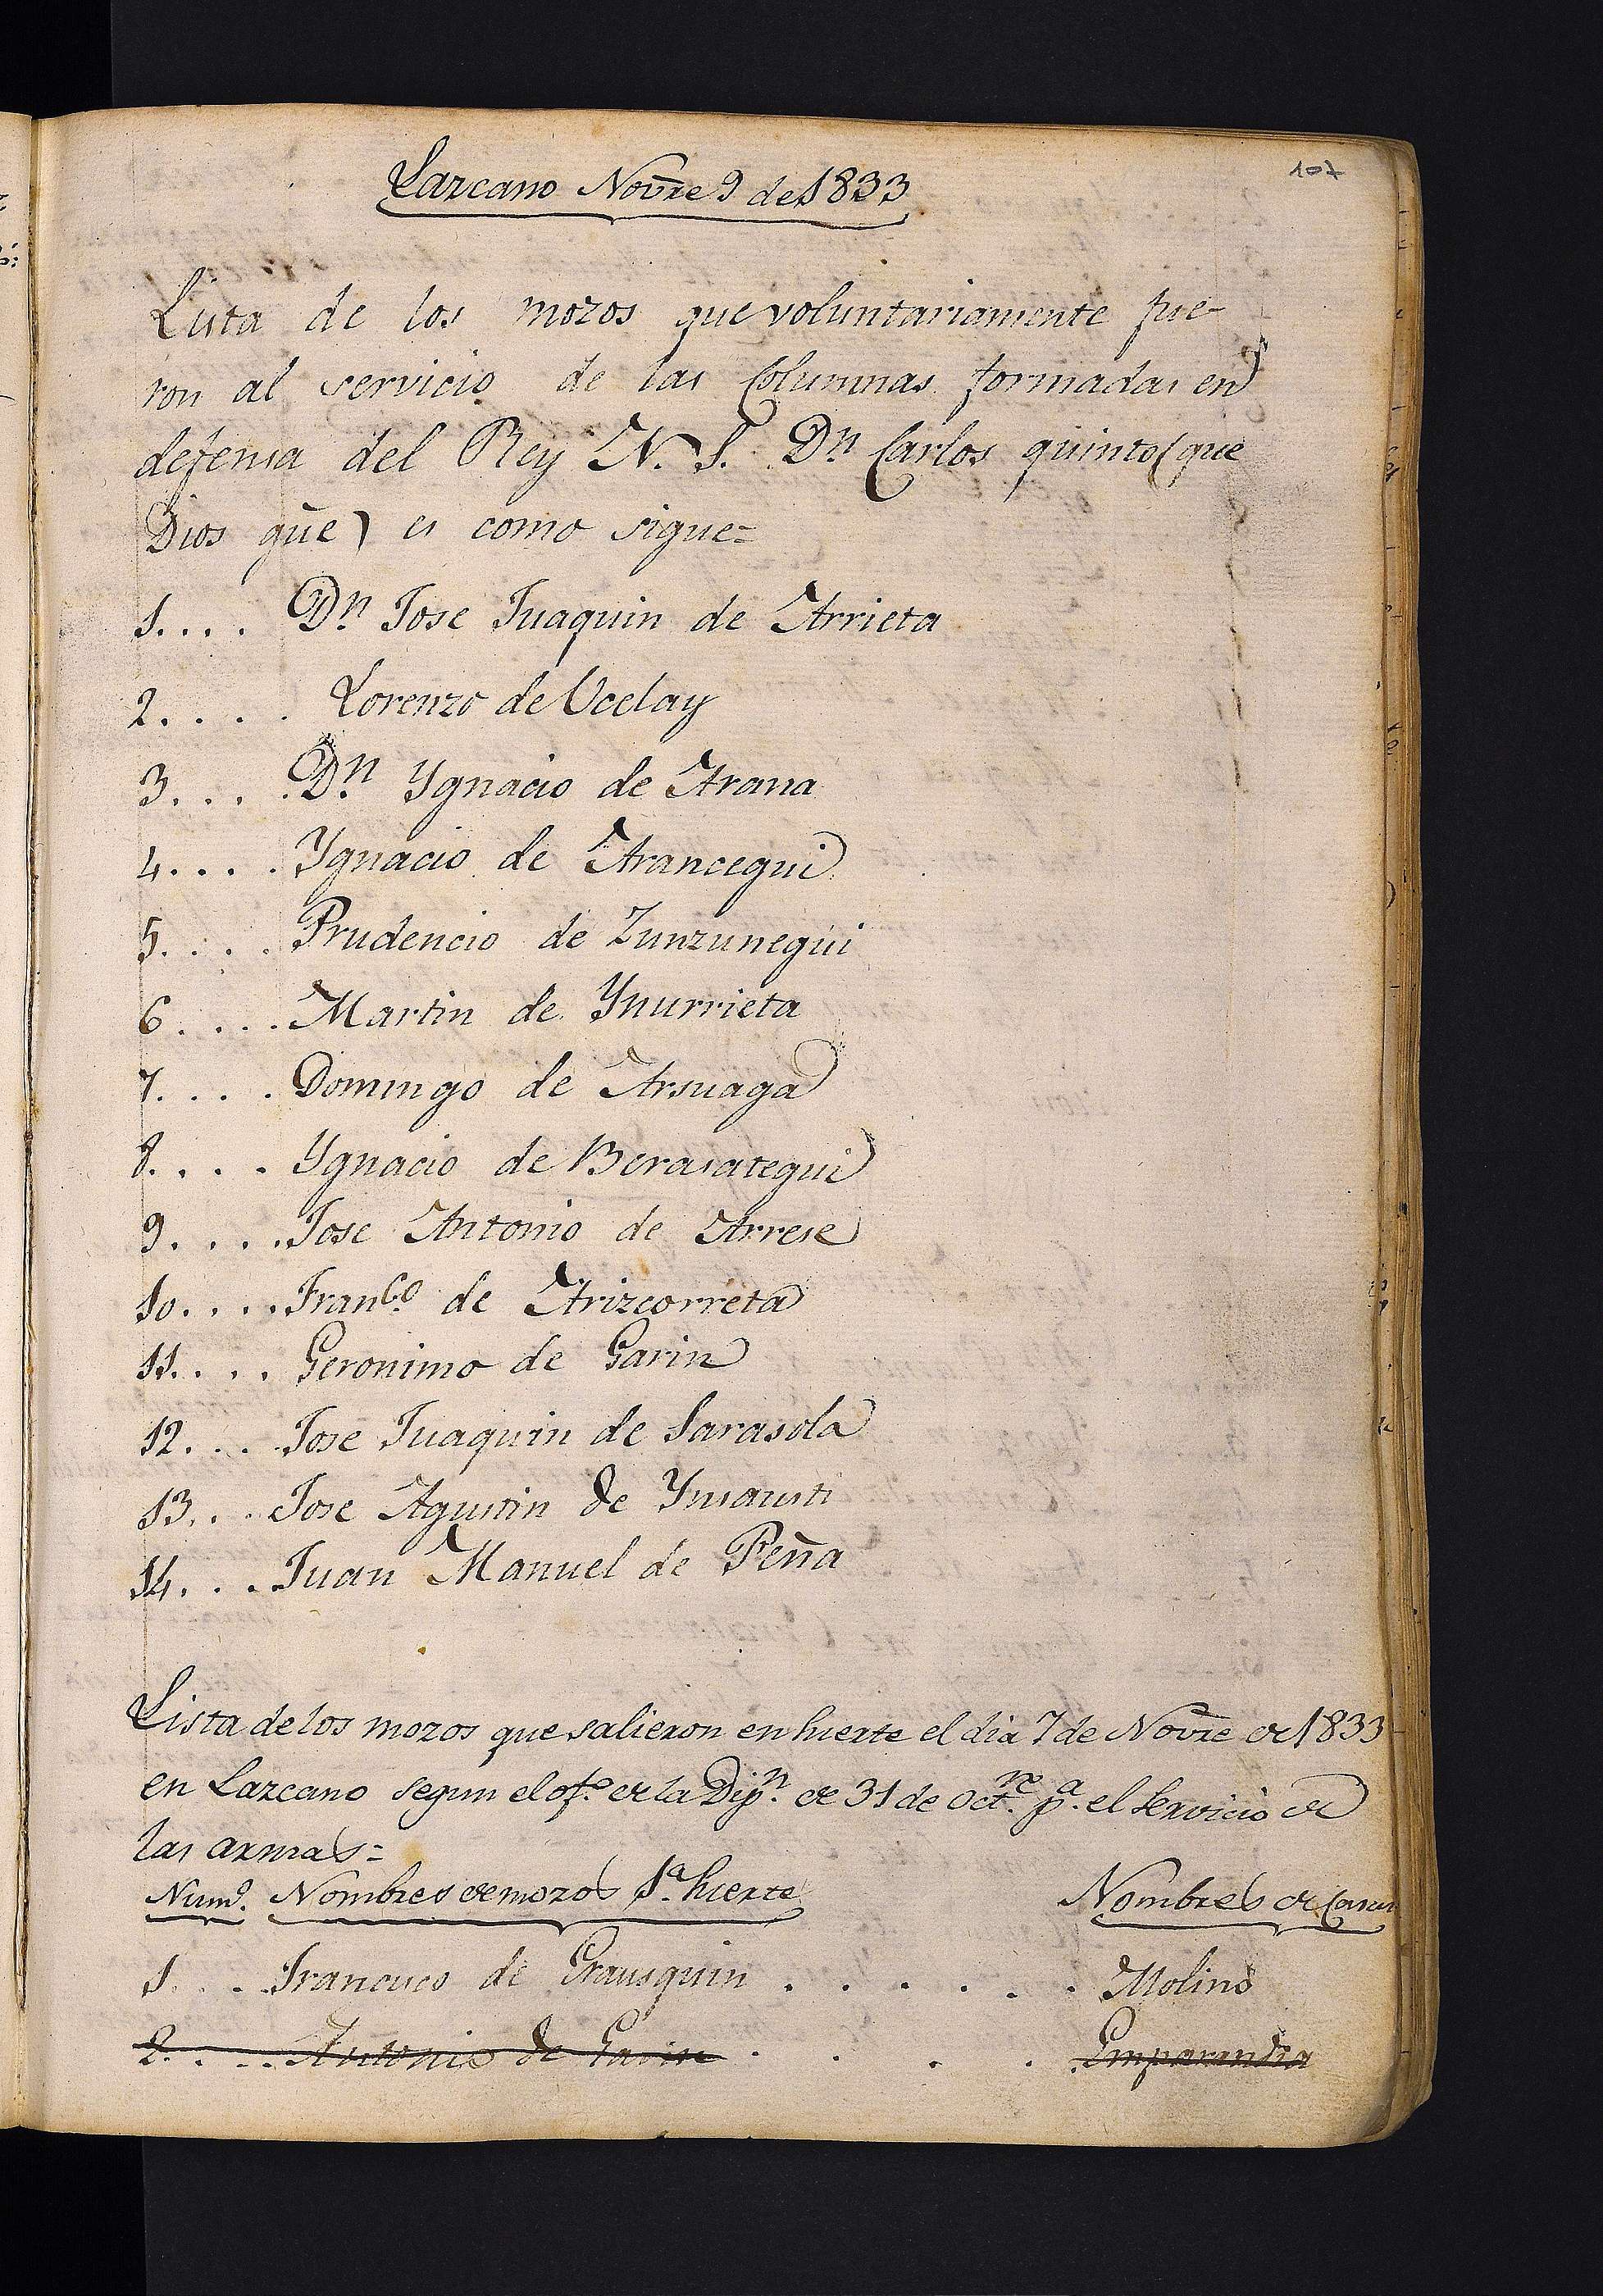 107
Lazcano Novre 9 de 1833
Lista de los mozos que voluntariamente fue-
ron al servicio de las Columnas formadas en
defensa del Rey N. S. Dn. Carlos quinto (que
Dios gue) es como sigue=
1.... Dn. Jose Juaquin de Arrieta
2.... Lorenzo de Ucelay
3.... Dn. Ygnacio de Arana
4.... Ygnacio de Arancegui
5.... Prudencio de Zunzunegui
6.... Martin de Ynurrieta
7.... Domingo de Arsuaga
8.... Ygnacio de Berasategui
9.... Jose Antonio de Arrese
10.... Franco. de Arizcorreta
11.... Geronimo de Garin
12.... Jose Juaquin de Sarasola
13... Jose Agustin de Ynsausti
14... Juan Manuel de Peña
Lista de los mozos que salieron en suerte el dia 7 de Novre de 1833
en Lazcano segun el ofo. de la Dipn. de 31 de Octre. pa. el servicio de
las armas=
Numo. Nombres de mozos 1a. suerte Nombres de Casas
1... Francisco de Grausquin...... Molino
2.... Antonio de Garin.... Emparandia